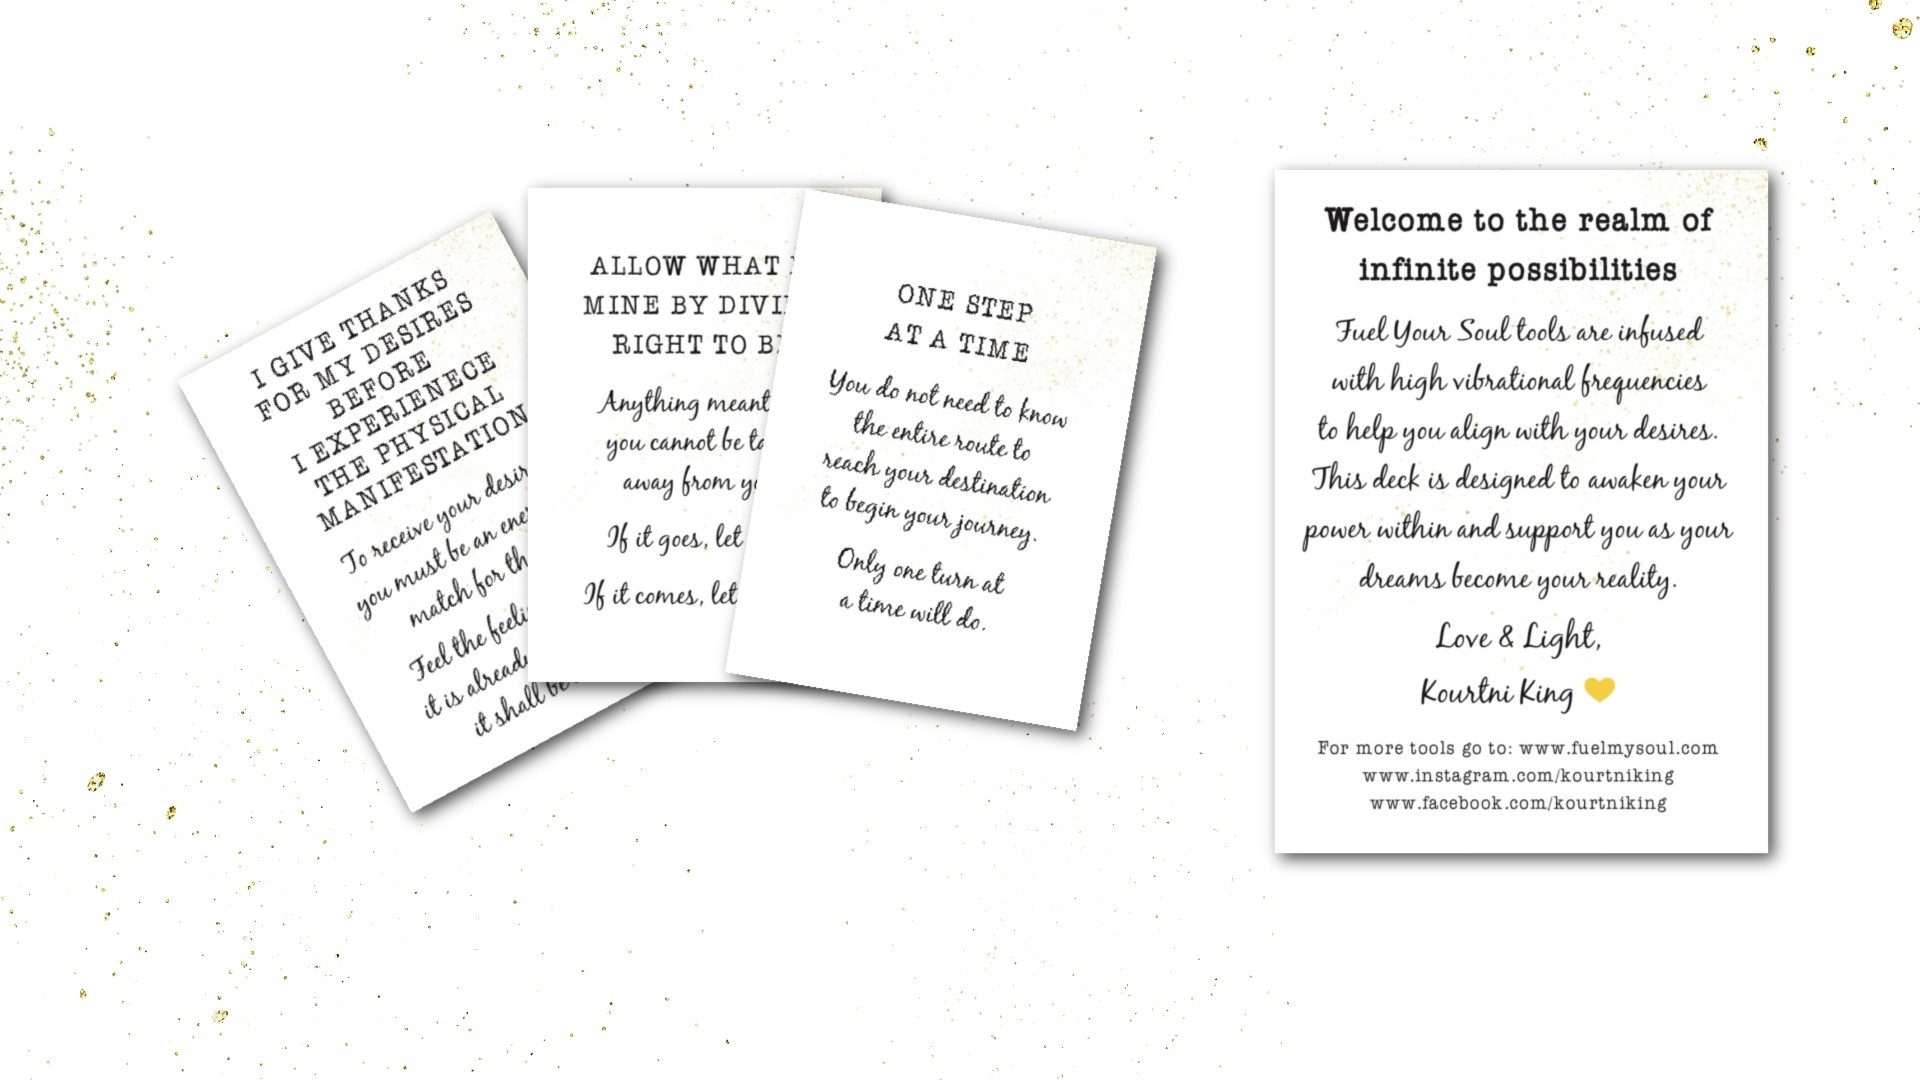 I GIVE THANKS
FOR MY DESIRES
BEFORE
I EXPERIENECE
THE PHYSICAL
MANIFESTATION
To receive your
you must be an
match for
Feel the
it is
it shall be
ALLOW WHAT
MINE BY
RIGHT TO
Anything meant
you cannot be
away from
If it goes, let
If it comes, let
ONE STEP
AT A TIME
You do not need to know
the entire route to
reach your destination
to begin your journey.
Only one turn at
a time will do.
Welcome to the realm of
infinite possibilities
Fuel Your Soul tools are infused
with high vibrational frequencies
to help you align with your desires.
This deck is designed to awaken your
power within and support you as your
dreams become your reality.
Love & Light,
Kourtni King
For more tools go to: www.fuelmysoul.com
www.instagram.com/kourtniking
www.facebook.com/kourtniking